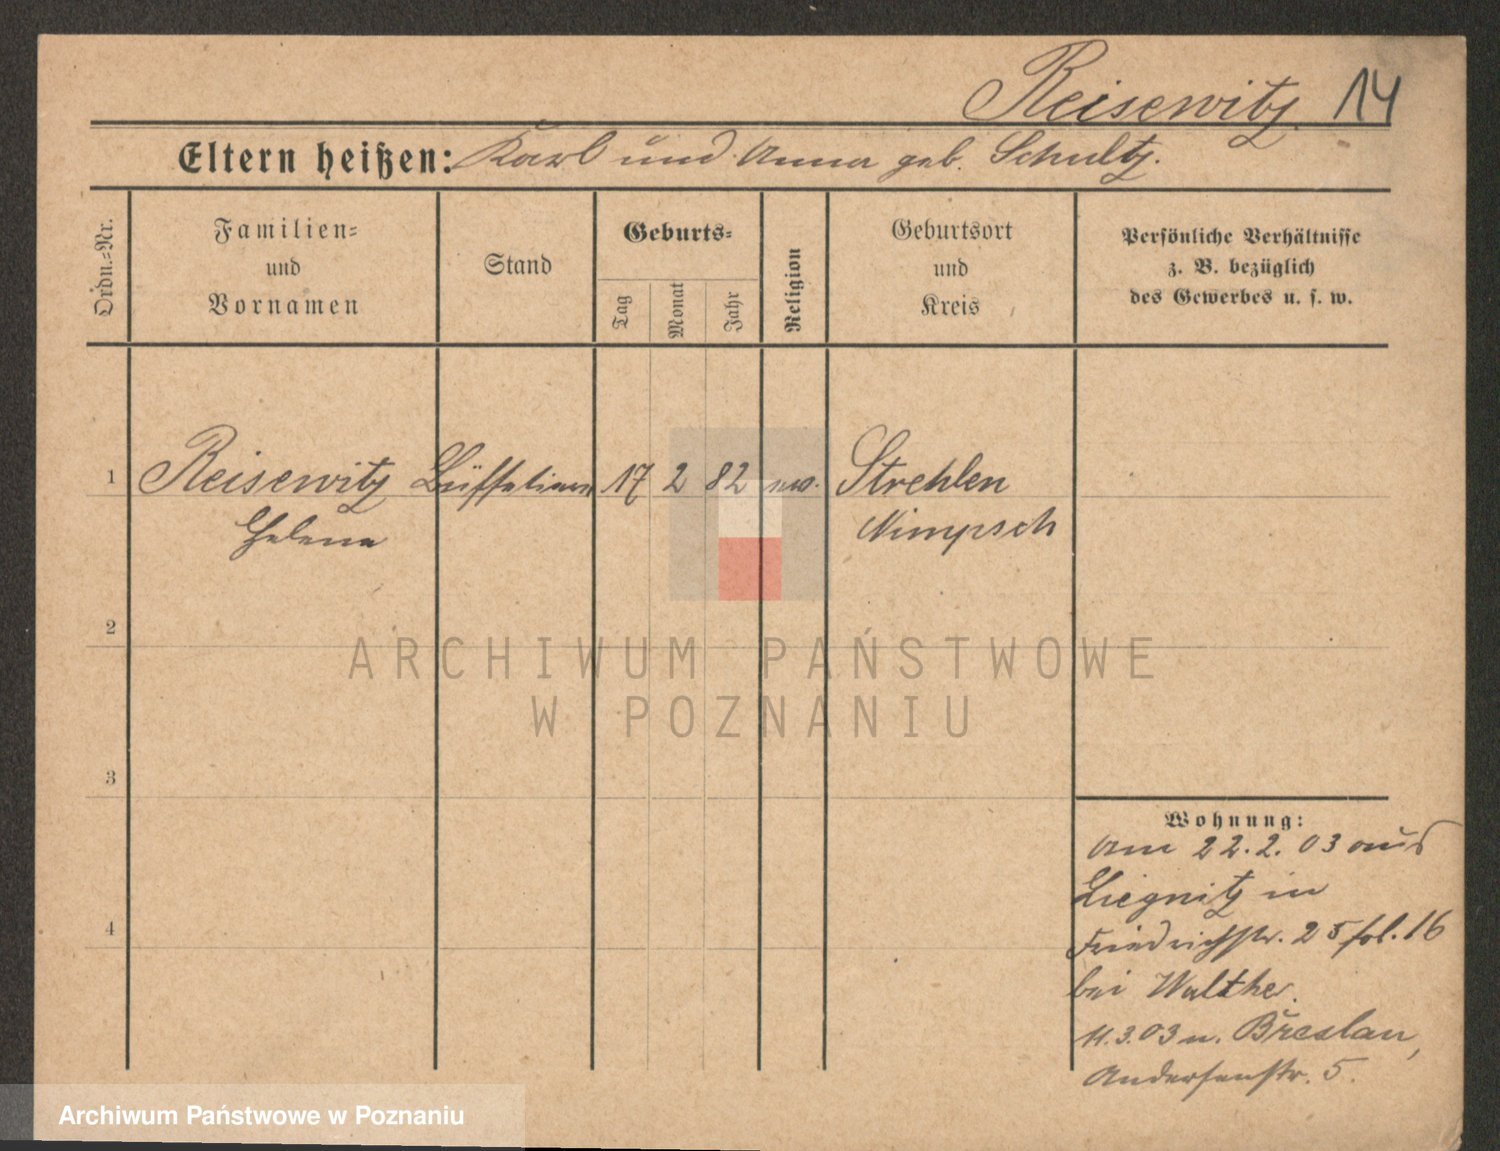 Reisewitz. 14
Eltern heißen: Karl und Anna geb. Schultz.
Ordn.-Nr.
Familien-
und
Vornamen
Stand
Geburts-
Tag
Monat
Jahr
Religion
Geburtsort
und
Kreis
Persönliche Verhältnisse
z. B. bezüglich
des Gewerbes u. s. w.
1 Reisewitz Büffetiere 17 2 82 ev. Strehlen
Helene Nimpsch
2
3
4
Wohnung:
Am 22.2.03 aus
Liegnitz in
Friedrichstr. 25 fol. 16
bei Walther.
11.3.03 n. Breslau,
Andersenstr. 5.
ARCHIWUM PAŃSTWOWE
W POZNANIU
Archiwum Państwowe w Poznaniu